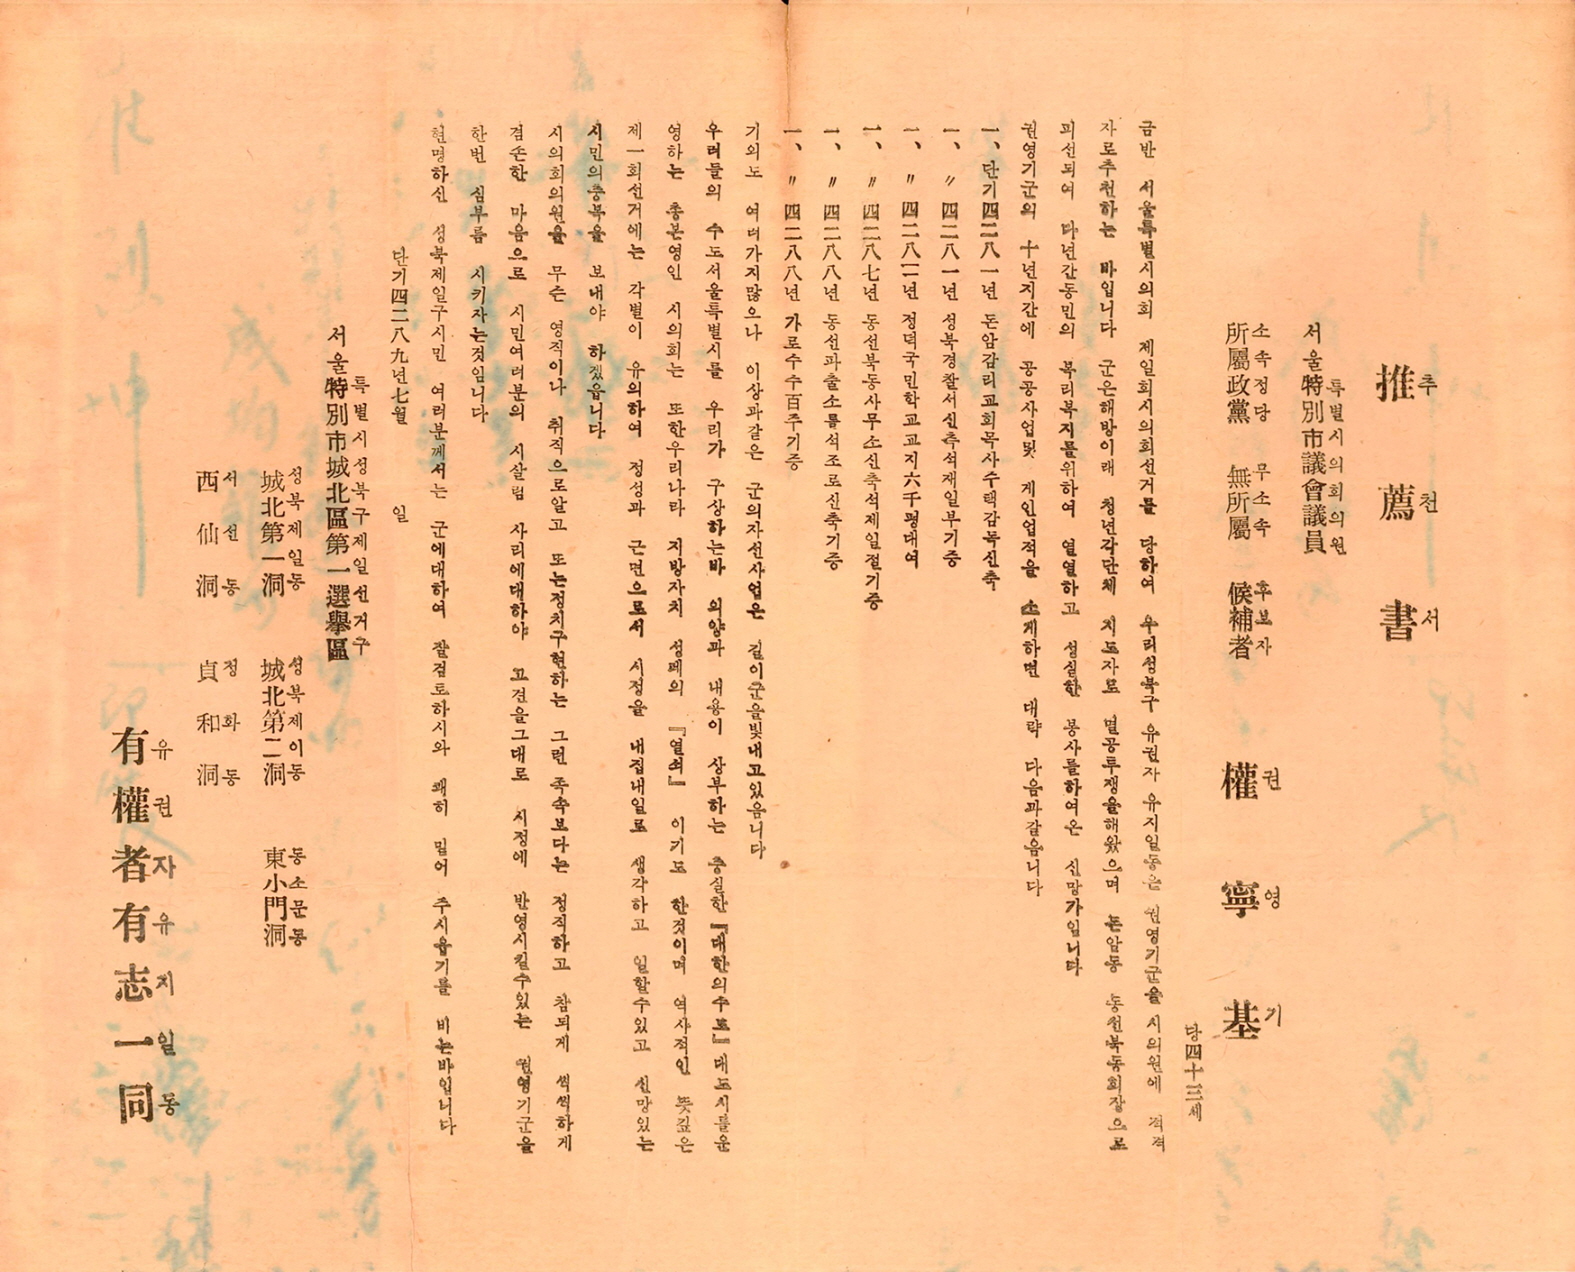 推薦書
추천서
서울特別市議會議員
특별시의회의원
所屬政黨 無所屬 候補者 權寧基
소속정당 무소속 후보자 권영기
당四十三세
금반 서울특별시의회 제일회시의회선거를 당하여 우리성북구 유권자 유지일동은 권영기군을 시의원에 적격
자로추천하는 바입니다 군은해방이래 청년각단체 지도자로 멸공투쟁을해왔으며 돈암동 동선북동회장으로
피선되여 다년간동민의 복리복지를위하여 열열하고 성실한 봉사를하여온 신망가입니다
권영기군의 十년지간에 공공사업및 게인업적을 소게하면 대략 다음과갈읍니다
一、단기四二八一년 돈암감리교회목사수택감복신축
一、〃四二八一년 성북경찰서신축석재일부기증
一、〃四二八二년 정덕국민학교교지六千평대여
一、〃四二八七년 동선북동사무소신축석제일절기증
一、〃四二八八년 동선파출소를석조로신축기증
一、〃四二八八년 가로수수百주기증
기외도 여러가지많으나 이상과같은 군의자선사업은 길이군을빛내고있음니다
우리들의 수도서울특별시를 우리가 구상하는바 의양과 내용이 상부하는 충실한『대한의수도』대도시를운
영하는 총본영인 시의회는 또한우리나라 지방자치 성폐의 『열쇠』 이기도 한것이며 역사적인 뜻깊은
제一회선거에는 각별이 유의하여 정성과 근면으로서 시정을 내집내일로 생각하고 일할수있고 신망있는
시민의충복을 보내야 하겠읍니다
시의회의원을 무슨 영직이나 취직으로알고 또는정치구현하는 그런 족속보다는 정직하고 참되게 씩씩하게
겸손한 마음으로 시민여러분의 시살림 사리에대하야 고견을그대로 시정에 반영시킬수있는 권영기군을
한번 심부름 시키자는것임니다
현명하신 성북제일구시민 여러분께서는 군에대하여 잘검토하시와 쾌히 밀어 주시옵기를 비는바입니다
단기四二八九년七월 일
서울特別市城北區第一選擧區
특별시성북구제일선거구
城北第一洞 城北第二洞 東小門洞
성북제일동 성북제이동 동소문동
西仙洞 貞和洞
서선동 정화동
有權者有志一同
유권자유지일동